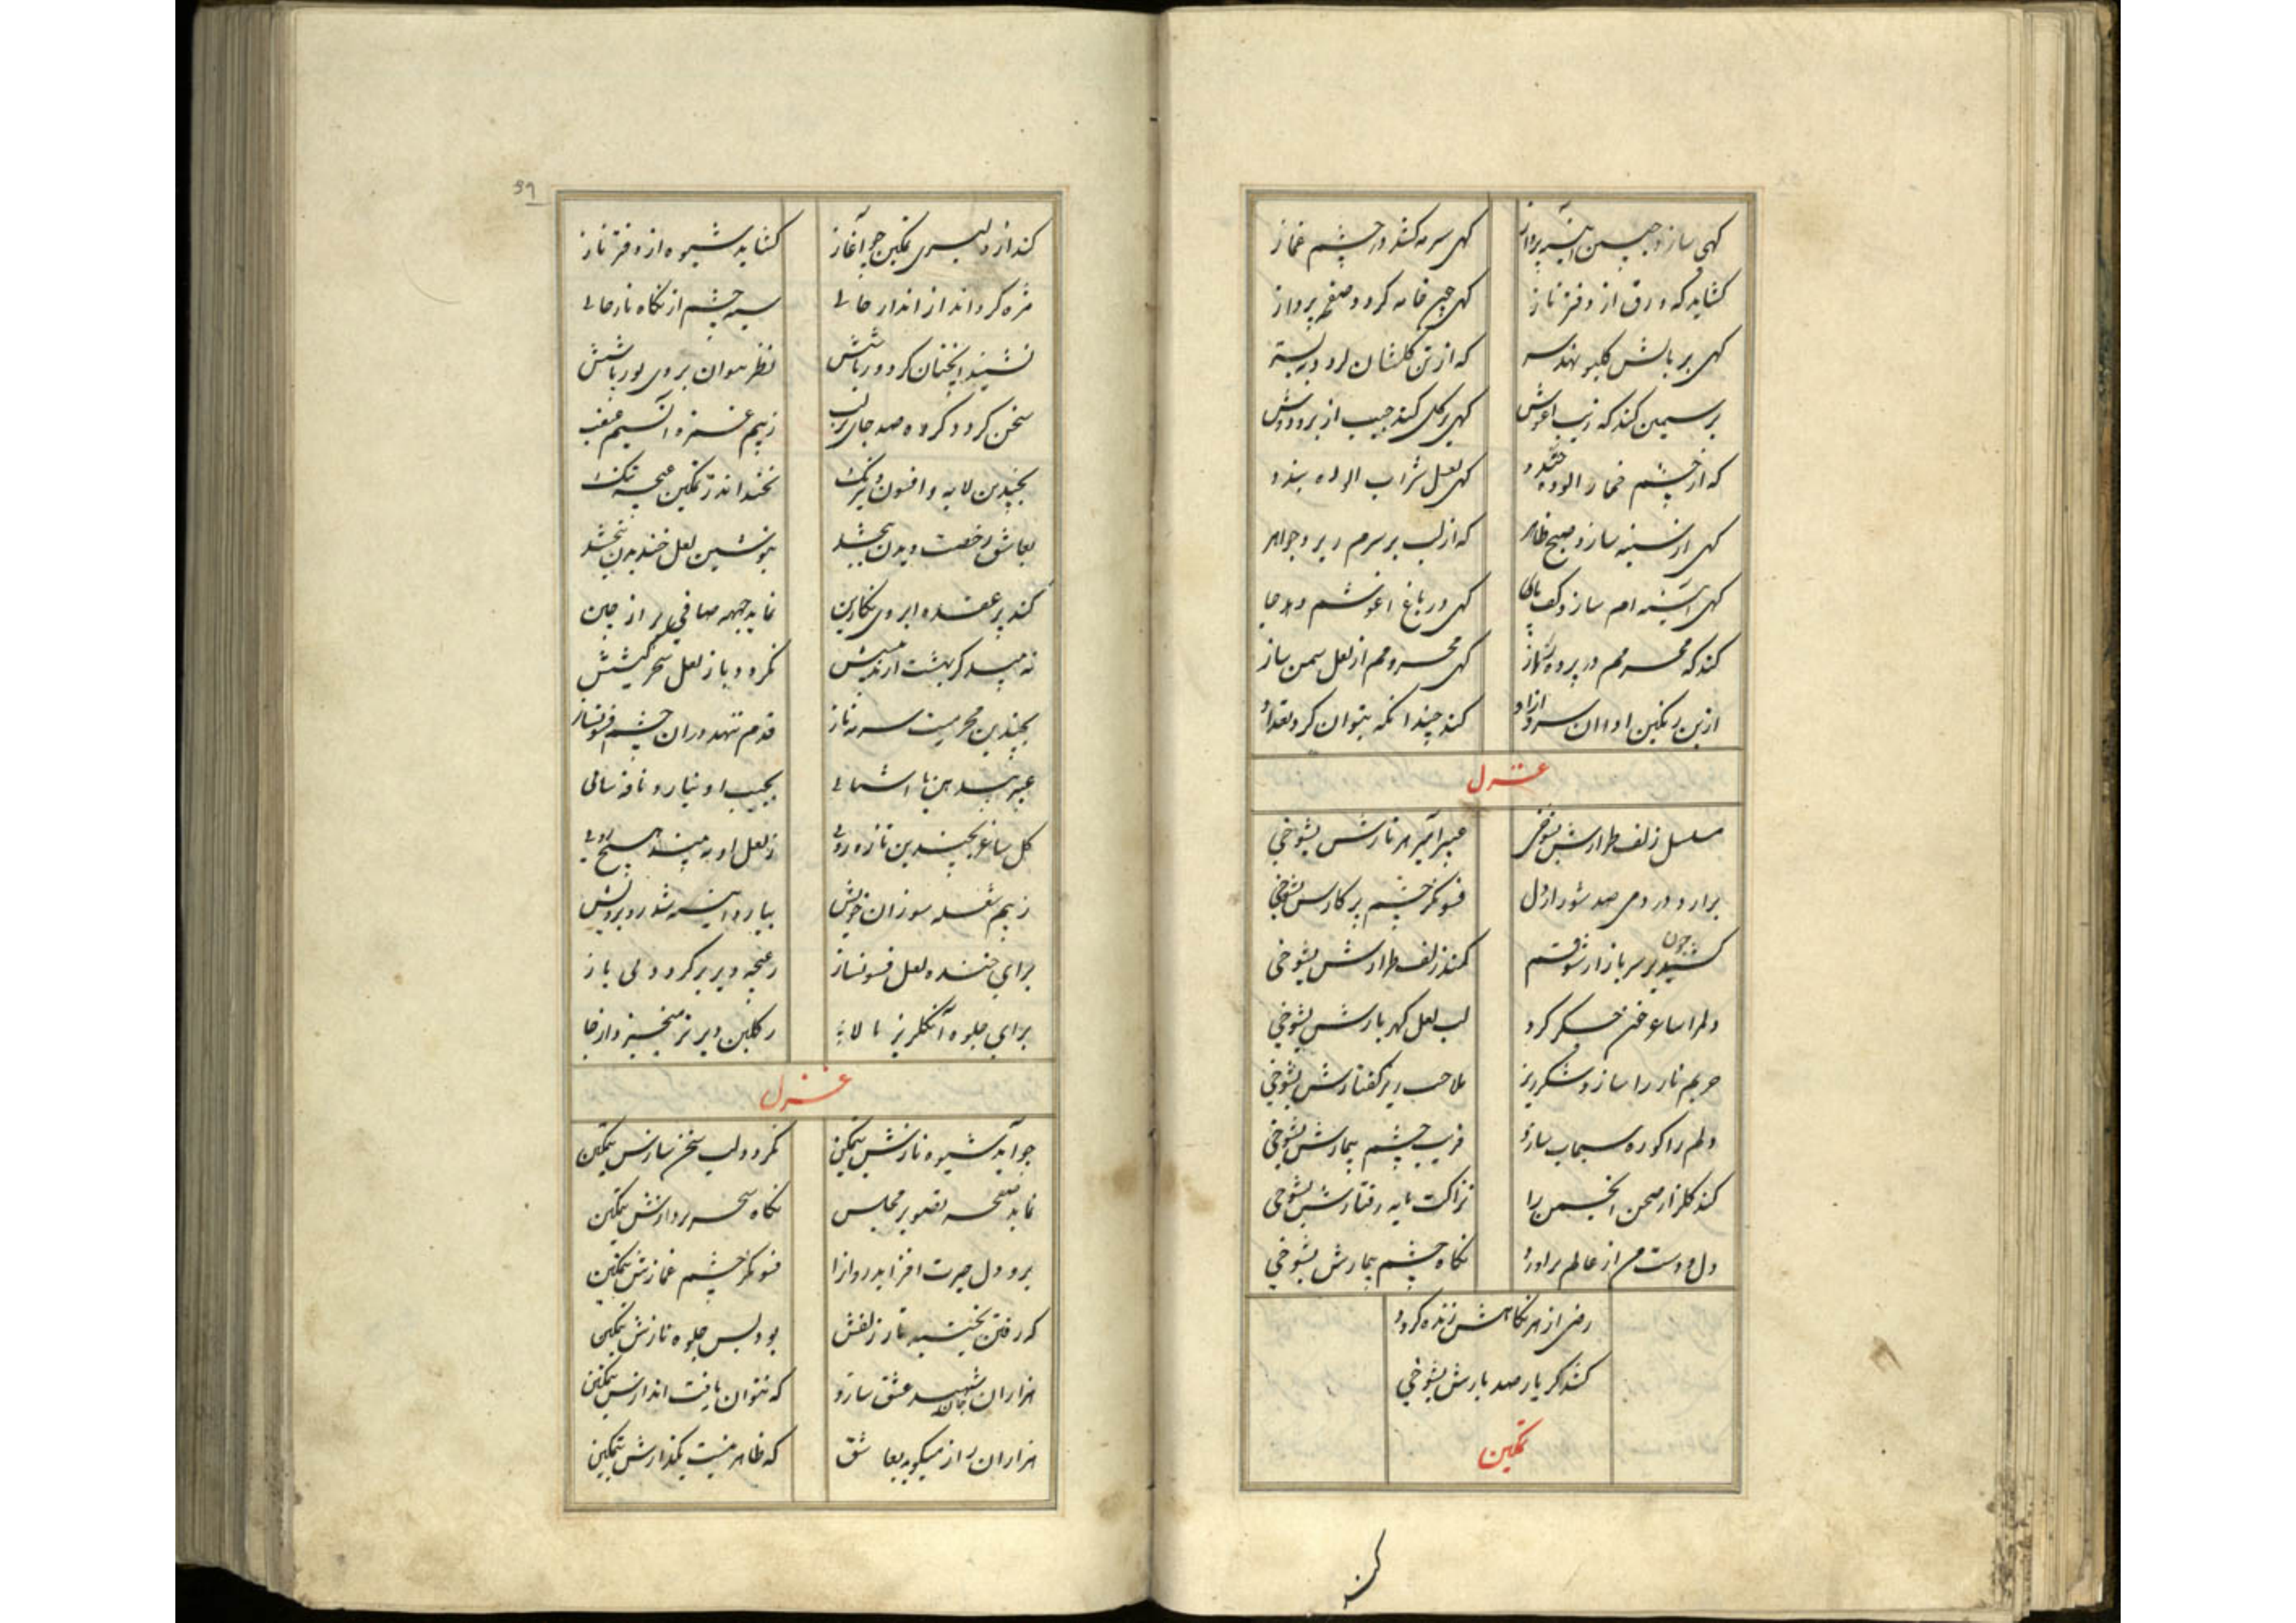 کهی سازد جبین آینه پرداز کهی سرمه کشد در چشم غماز
کشاید که ورق از دفتر ناز کهی چین خامه کردد صفحه پرداز
کهی بر بالش کلبو نهد سر که از تن کلفشان
بر سیمین کند که زیب اغوش کهی بر کل کند جیب از بر و دوش
که از چشم خمار الوده خندد کهی لعل شراب الوده بندد
کهی از سینه سازد صبح ظاهر که از لب بر سرم ریزد جواهر
کهی آیینه ام سازد کف پای کهی در باغ اغوشم دهد جا
کند که محرمم در پرده راز کهی محرومم از لعل سمن ساز
ازین رنکین ادا ان سرو ازاد کند چندانکه بتوان کرد تعداد
غزل
مسلسل زلف طرارش بشوخی عبیر امیز هر تارش بشوخی
برارد در دمی صد شور از دل فسونکر چشم پرکارش بشوخی
کشید چون بر سر بازار شوقم کمند زلف طرارش بشوخی
دلم را ساغر خون جکر کرد لب لعل کهربارش بشوخی
حریم ناز را سازد شکرریز ملاحت ریز کفتارش بشوخی
دلم را کوره سیماب سازد فریب چشم بیمارش بشوخی
کند کلزار صحن انجمن را نزاکت پایه رفتارش بشوخی
دل و دست من از عالم براورد نکاه چشم بیمارش بشوخی
رضی از هر نکاهش زنده کردد
کشد کر یار صد بارش بشوخی
تمکین
کند
39
کند از دلبری تمکین چو آغاز کشاید شیوه از دفتر ناز
مژه کرداند از انداز خالی سیه چشم از نکاه ناز خالی
نشیند انچنان کرد ورباشش نظر نتوان بروی دورباشش
سخن کردد کره صد جای بر لب ز بیم غمزه
بچندین لابه و افسون و نیرنک نخندد اندر تمکین غنچه تنک
بعاشق رخصت دیدن نبخشد بنوشین لعل خندیدن نبخشد
کند پر عقده ابروی نکارین نماید جبهه صافی پر از چین
نکردد باز لعل سحر کیشش
بچندین محرمیت سرمه ناز قدم ننهد در ان چشم فسونساز
بجیب او نیارد نافه سائی
کل ساغر بچندین تازه روئی ز لعل او نه بیند هیچ روئی
ز بیم شعله سوزان خویش نیارد آینه شد روبرویش
برای خنده لعل فسونساز ز غنچه دیرتر کردد لبی باز
برای جلوه ز کلبن دیرتر میخیزد از جا
غزل
چو آید شیوه نازش بتمکین نکردد لب سخن سازش بتمکین
نماید صفحه تصویر مجلس نکاه سحر پردازش بتمکین
برد دل حیرت افزاید فسونکر چشم غمازش بتمکین
که رفتن تار زلفش بود بس جلوه نازش بتمکین
هزاران جان شهید عشق سازد که نتوان یافت اندازش بتمکین
هزاران راز میکوید بعاشق که ظاهر نیست یکذارش بتمکین